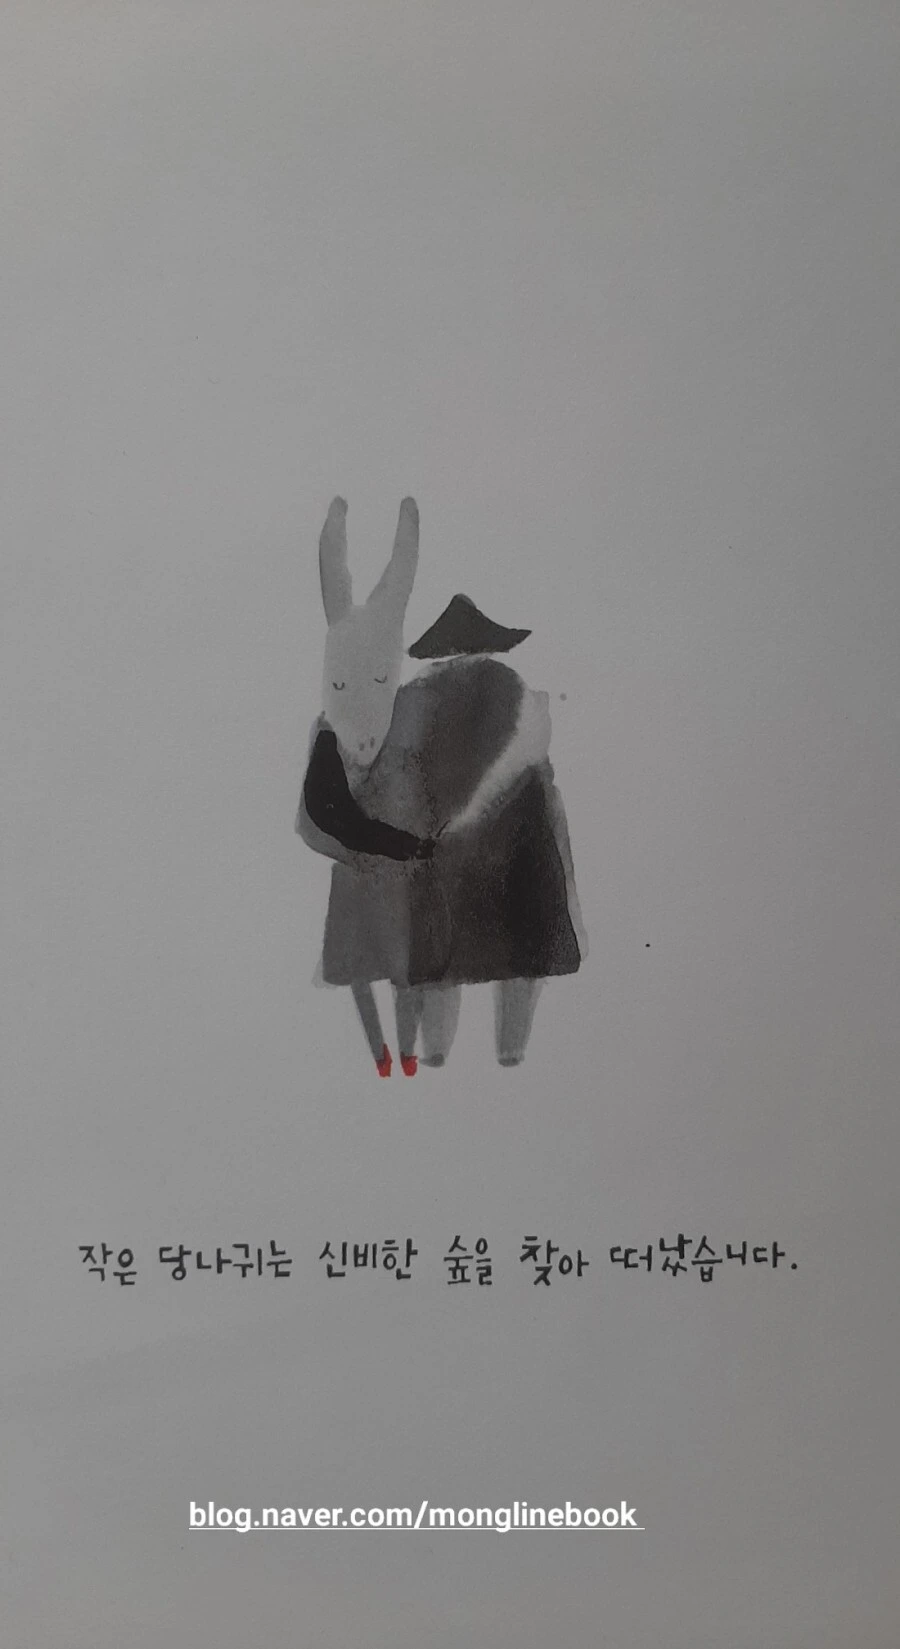 작은 당나귀는 신비한 숲을 찾아 떠났습니다.
blog.naver.com/monglinebook